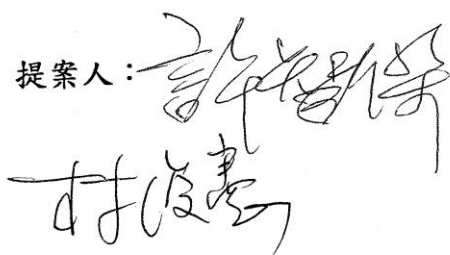 提案人：許智傑
林俊憲